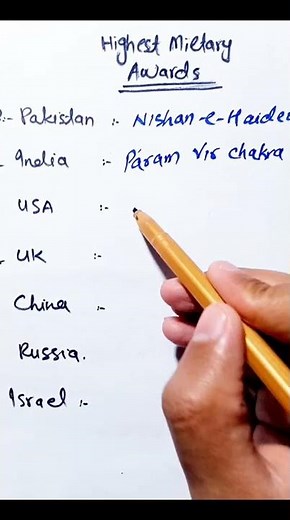 Highest Miltary
Awards
:- Pakistan :- Nishan-e-Haider
India :- Param Vir Chakra
USA :-
UK :-
China :-
Russia.
Israel :-